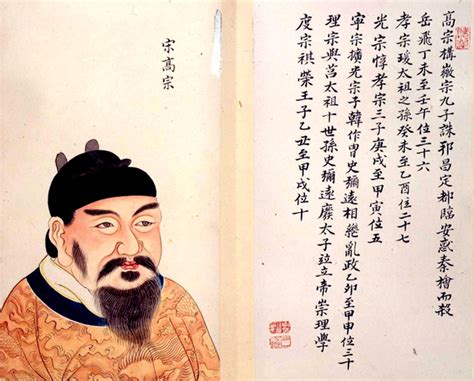 高宗構徽宗九子誅邦昌定都臨安惑秦檜而殺
岳飛丁未至壬午位三十六
孝宗瑗太祖之孫癸未至乙酉位二十七
光宗惇孝宗三子庚戌至甲寅位五
寧宗擴光宗子韓作胄史彌遠相繼亂政乙卯至甲申位三十
理宗與莒太祖十世孫史彌遠廢太子竑立帝崇理學
度宗祺榮王子乙丑至甲戌位十
宋高宗